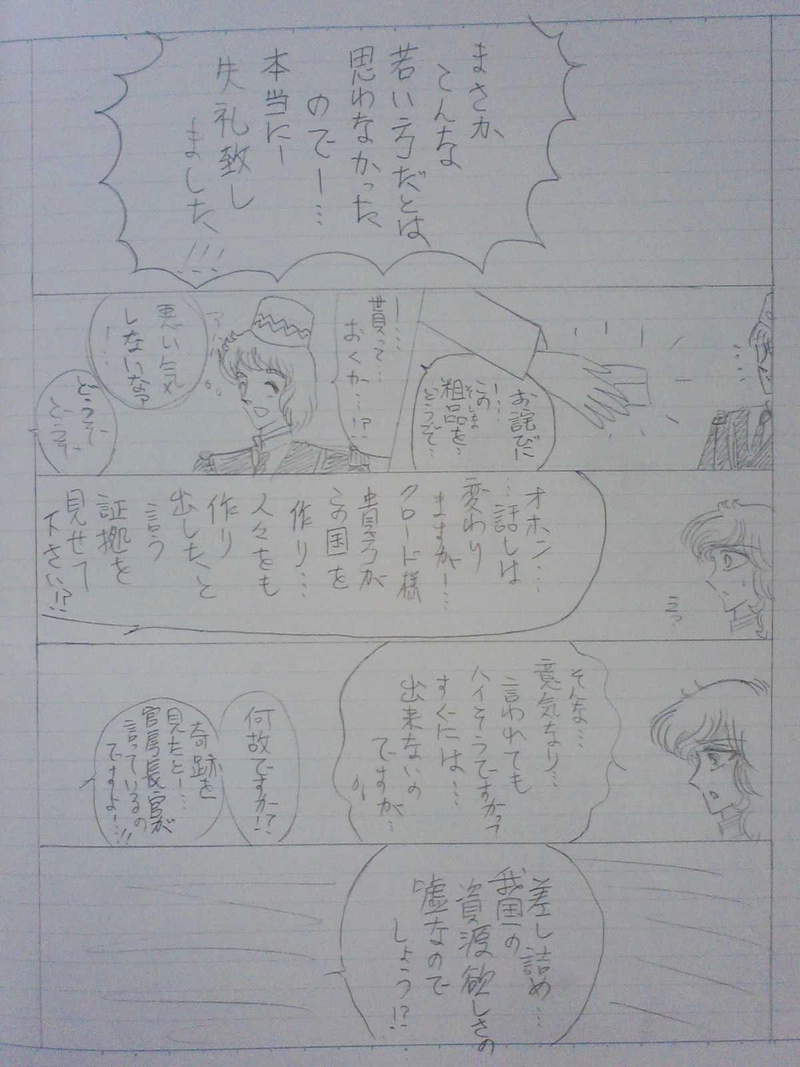 まさか
こんな
若い方だとは
思わなかった
のでー…
本当にー
失礼致し
ました、!!!
お詫びに
ー…
この
粗品を…
そしな
どうぞ…
ー…
貰って…
おくか…!?
悪い気
しないなァ
ー…
どうぞ、
どうぞ、
オホン…
…話しは
変わり
ますがー…
クロード様
貴方が
この国を
作り…
人々をも
作り
出したと
言う
証拠を
見せて
下さい!?
えっ?
そんな…
意気なり…
言われても
ハイそうですかって
すぐには…
出来ないの
ですが…
何故ですか!?
奇跡を
見たとー…
官房長官が
言っているの
ですよー…!!
差し詰め…
我国の
資源欲しさの
嘘なので
しょう!?